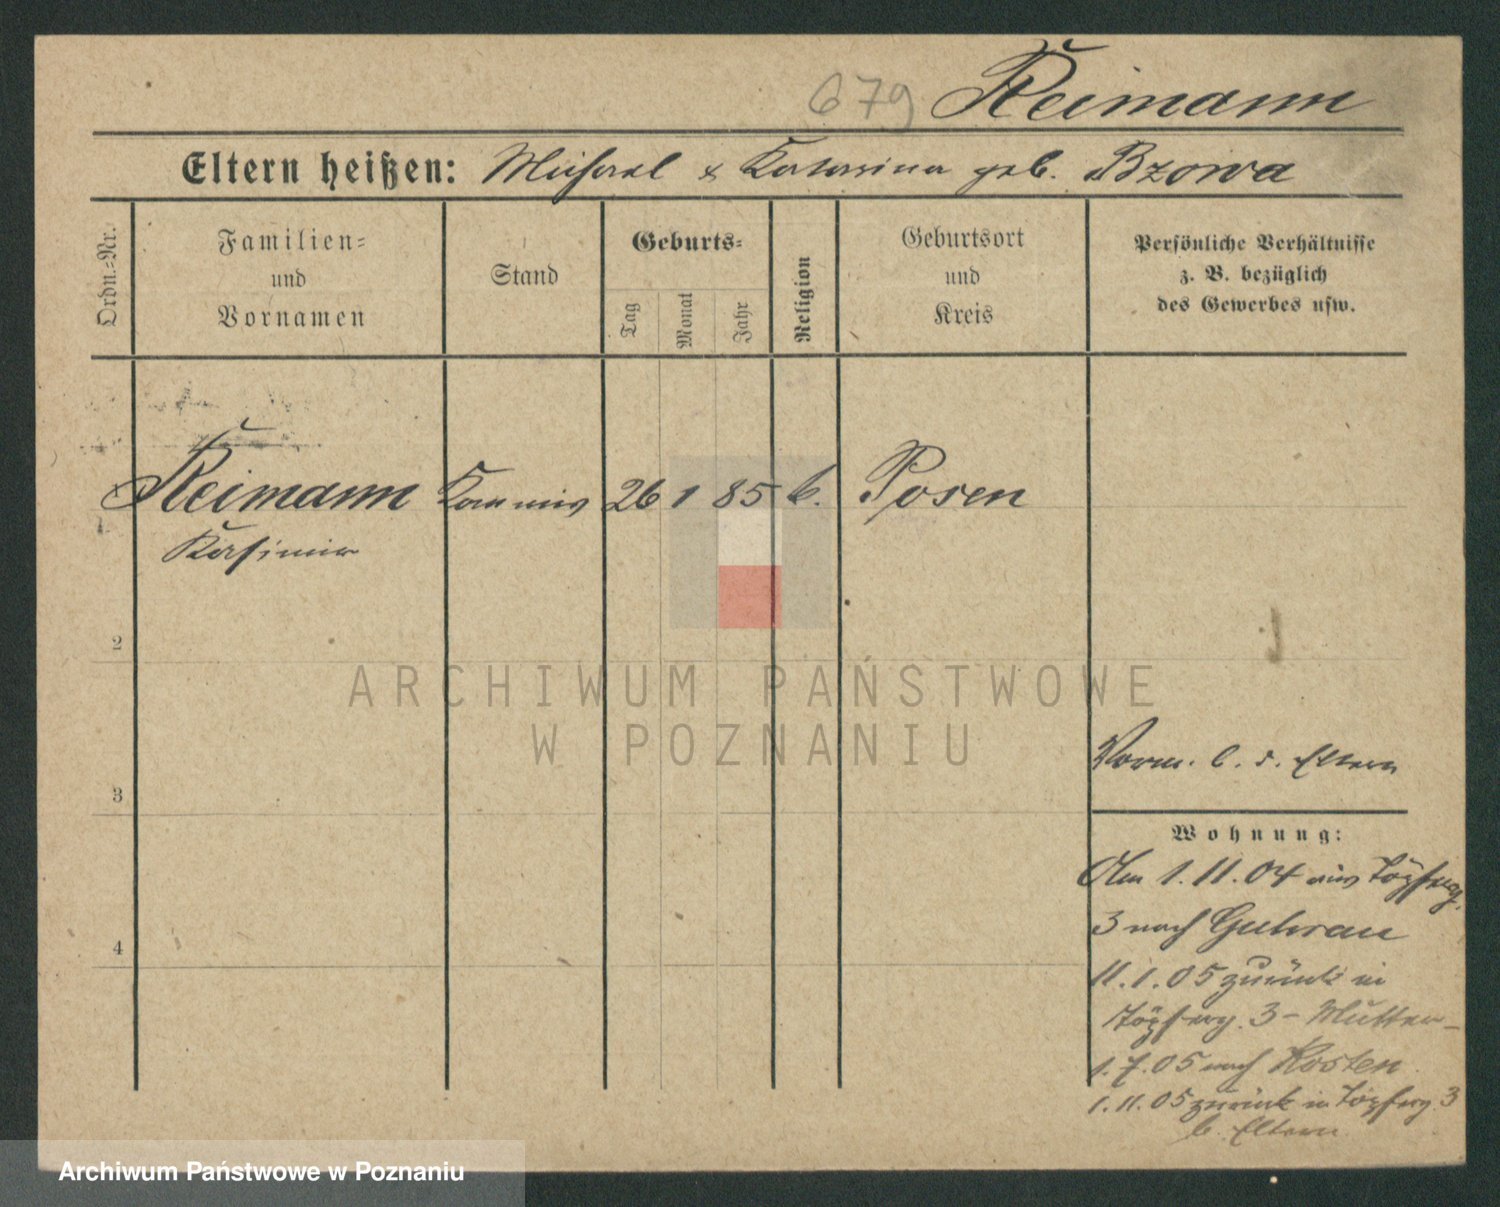 679 Reimann
Eltern heißen: Michael & Katarina geb. Bzowa
Ordn.-Nr.
Familien-
und
Vornamen
Stand
Geburts-
Tag
Monat
Jahr
Religion
Geburtsort
und
Kreis
Persönliche Verhältnisse
z. B. bezüglich
des Gewerbes usw.
Reimann Kommis 26 1 85 k. Posen
Kasimir
2
ARCHIWUM PAŃSTWOWE
W POZNANIU
Vorm. b. d. Eltern
3
Wohnung:
Am 1.11.04 aus Töpferg.
3 nach Guhrau
4
11.1.05 zurück in
Töpferg. 3 - Mutter -
1.7.05 nach Kosten
1.11.05 zurück in Töpferg 3
b. Eltern
Archiwum Państwowe w Poznaniu